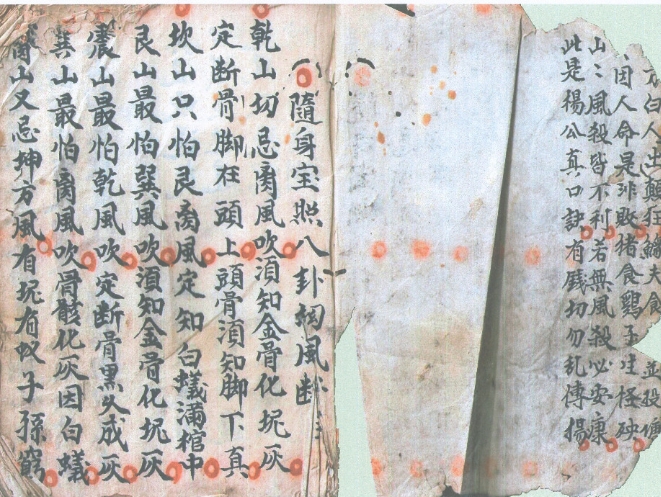 白人出癲狂緣夫食
因人命是非敗猪食鷄子生怪
山〻風殺皆不利若無風殺必安康
此是楊公真口訣有錢切勿乱傳揚
隨身宝照八卦風断
乾山切忌离風吹須知金骨化坭灰
定断骨脚在頭上頭骨須知脚下真
坎山只怕艮离風定知白蟻滿棺中
艮山最怕巽風吹須知金骨化坭灰
震山最怕乾風吹定断骨黑久成灰
巽山最怕离風吹骨骸化灰因白蟻
离山又忌坤方風有坭有蚁子孫窮